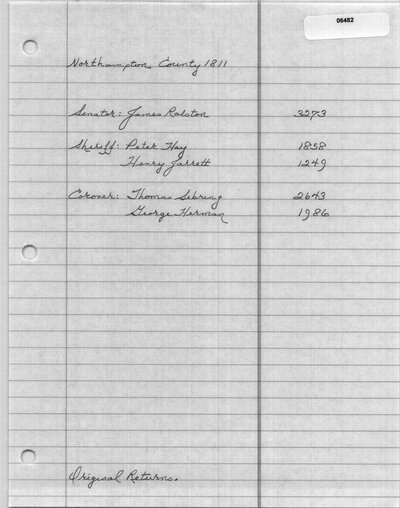 06482
Northampton County 1811
Senator: James Ralston 3273
Sheriff: Peter Hay 1858
Henry Jarrett 1249
Coroner: Thomas Sebring 2643
George Herman 1986
Original Returns.